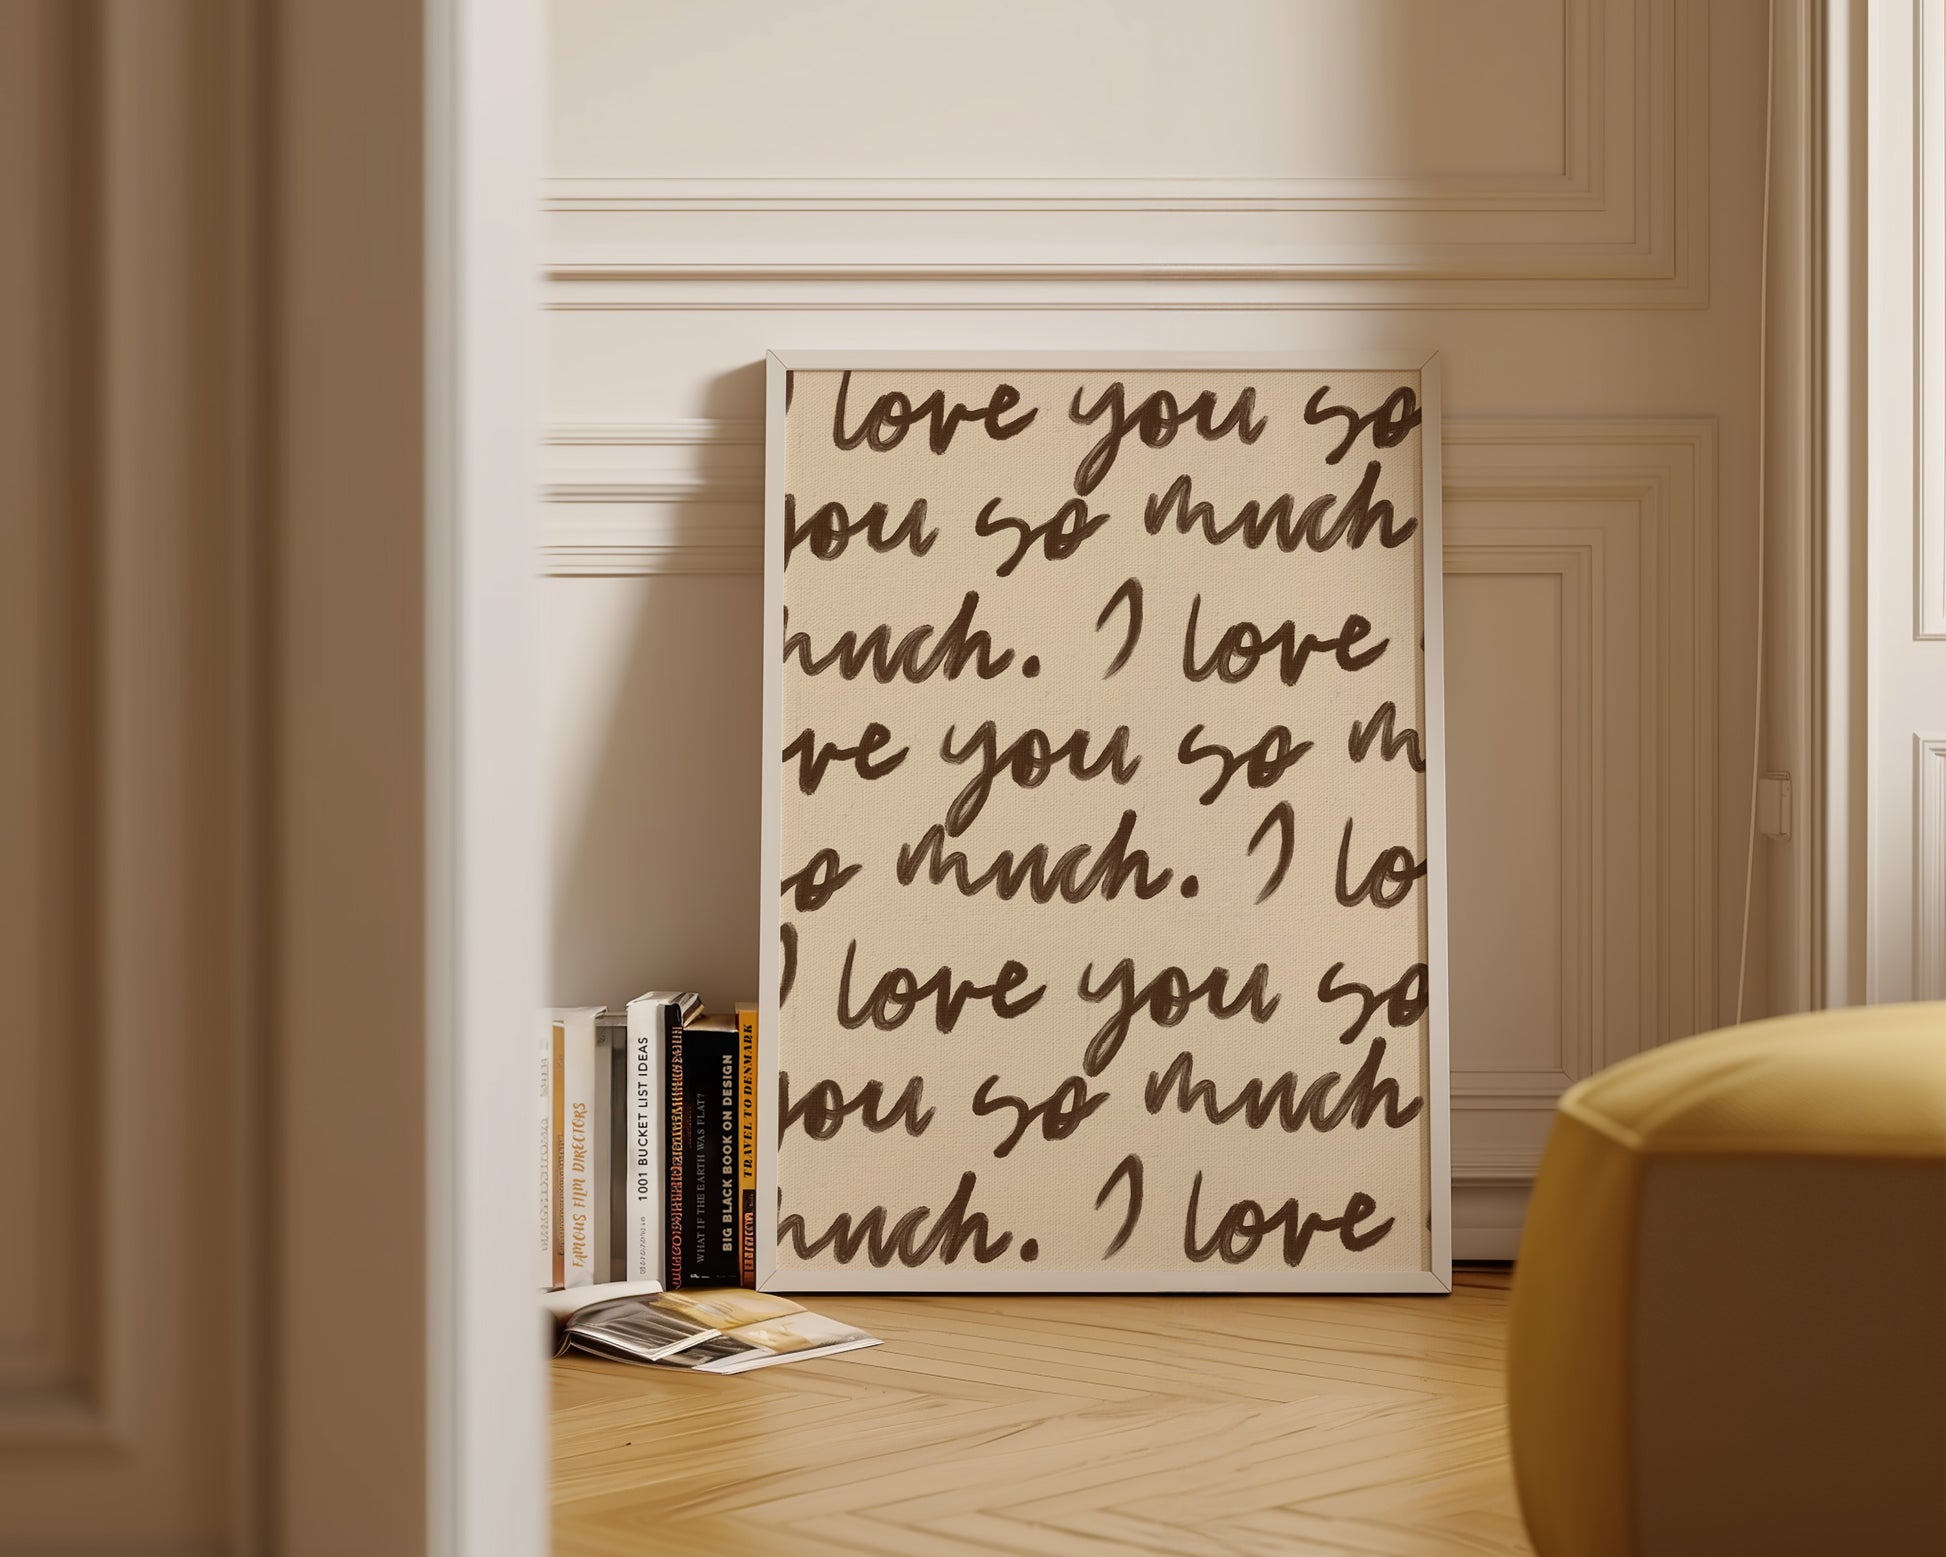 I love you so
you so much
much. I love
ve you so m
so much. I lo
I love you so
you so much
much. I love
FAMOUS FILM DIRECTORS
1001 BUCKET LIST IDEAS
WHAT IF THE EARTH WAS FLAT?
BIG BLACK BOOK ON DESIGN
TRAVEL TO DENMARK